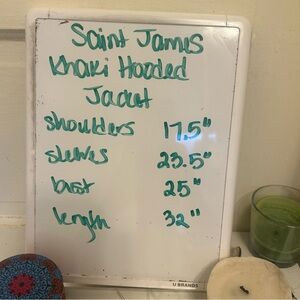 Saint James
Khaki Hooded
Jacket
shoulders 17.5"
sleeves 23.5"
bust 25"
length 32"
U BRANDS